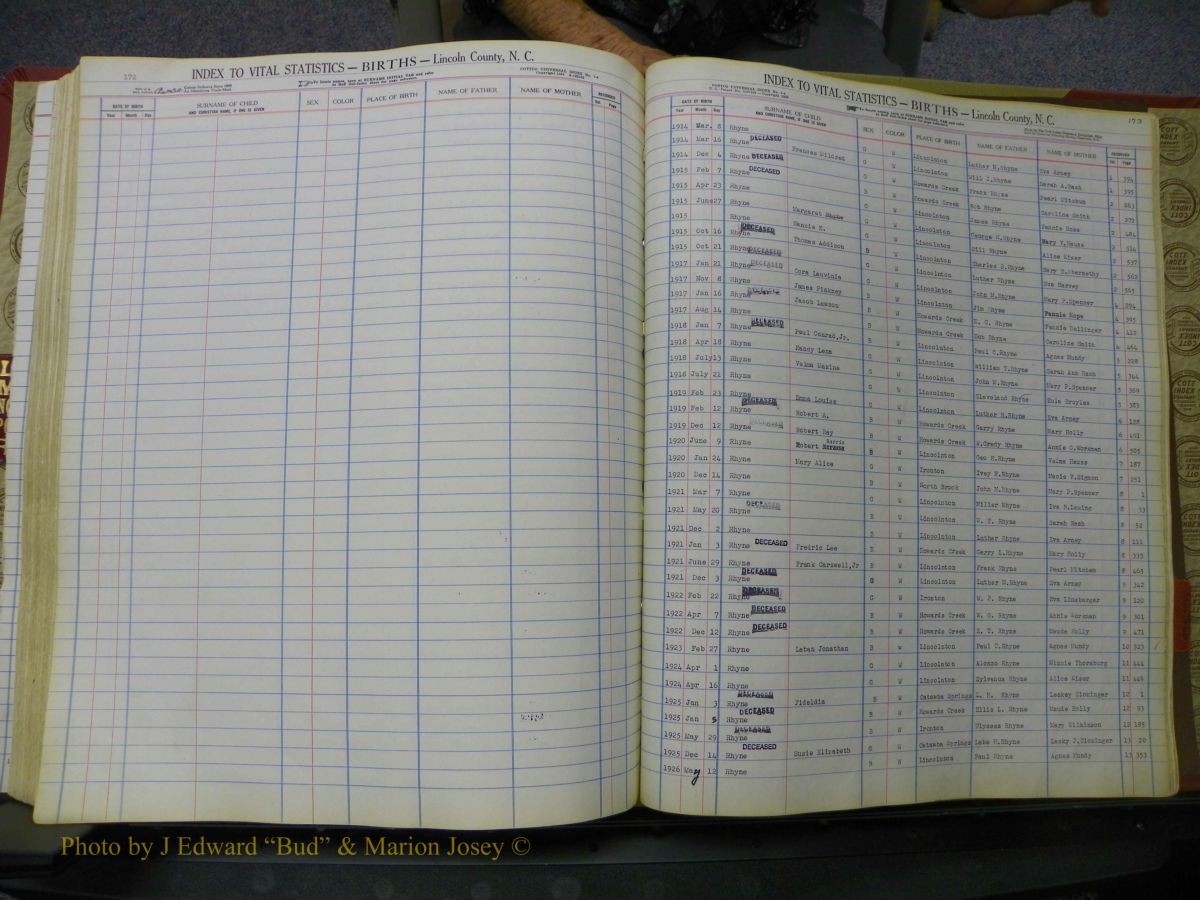 172
INDEX TO VITAL STATISTICS — BIRTHS — Lincoln County, N. C.
DATE OF BIRTH
Year Month Day
SURNAME OF CHILD
AND CHRISTIAN NAME, IF ONE IS GIVEN
SEX
COLOR
PLACE OF BIRTH
NAME OF FATHER
NAME OF MOTHER
RECORDED
Vol. Page
INDEX TO VITAL STATISTICS — BIRTHS — Lincoln County, N. C.
173
DATE OF BIRTH
Year Month Day
SURNAME OF CHILD
AND CHRISTIAN NAME, IF ONE IS GIVEN
SEX
COLOR
PLACE OF BIRTH
NAME OF FATHER
NAME OF MOTHER
RECORDED
Vol. Page
1914 Mar. 8 Rhyne G W Lincolnton Luther H.Rhyne Eva Arney 1 394
1914 Mar 16 Rhyne DECEASED Frances Mildred G W Lincolnton Will I.Rhyne Sarah A.Rash 1 395
1914 Dec 4 Rhyne DECEASED W Howards Creek Frank Rhyne Pearl Mitchum 2 263
1915 Feb 7 Rhyne DECEASED W Howards Creek Bob Rhyne Caroline Smith 2 272
1915 Apr 23 Rhyne Margaret W Lincolnton James Rhyne Fannie Hoke 2 484
1915 June 27 Rhyne Nancie E. W Lincolnton George H.Rhyne Mary V.Hauss 2 514
1915 Rhyne DECEASED Thomas Addison W Lincolnton Gill Rhyne Alice Kiser 2 537
1915 Oct 16 Rhyne DECEASED W Lincolnton Charles S.Rhyne Mary C.Abernethy 2 562
1915 Oct 21 Rhyne DECEASED Cora Louvinia W Lincolnton Luther Rhyne Eva Harvey 2 565
1917 Jan 21 Rhyne James Pinkney W Lincolnton John M.Rhyne Mary P.Spencer 4 294
1917 Nov 8 Rhyne Jacob Lawson W Howards Creek Jim Rhyne Fannie Hope 4 395
1917 Jan 16 Rhyne W Howards Creek E. C. Rhyne Fannie Dellinger 4 412
1917 Aug 14 Rhyne DECEASED Paul Conrad,Jr. W Lincolnton Bob Rhyne Caroline Smith 4 464
1918 Jan 7 Rhyne Nancy Lena W Lincolnton Paul C.Rhyne Agnes Mundy 5 228
1918 Apr 18 Rhyne Velma Maxine W Lincolnton William T.Rhyne Sarah Ann Rash 5 364
1918 July 13 Rhyne W Lincolnton John M.Rhyne Mary P.Spencer 5 369
1918 July 21 Rhyne Edna Louise W Lincolnton Cleveland Rhyne Eula Broyles 5 383
1919 Feb 23 Rhyne DECEASED Robert A. W Howards Creek Luther H.Rhyne Eva Arney 6 128
1919 Feb 12 Rhyne Robert Ray W Howards Creek Garry Rhyne Mary Holly 6 491
1919 Dec 12 Rhyne Robert Harris W Lincolnton W.Grady Rhyne Annie G.Workman 6 505
1920 June 9 Rhyne Mary Alice W Ironton Geo H.Rhyne Velma Hauss 7 187
1920 Jan 24 Rhyne W North Brook Ivey R.Rhyne Macie V.Sigmon 7 251
1920 Dec 14 Rhyne W Lincolnton John M.Rhyne Mary P.Spencer 8 1
1921 Mar 7 Rhyne DECEASED W Lincolnton Miller Rhyne Iva S.Lewing 8 33
1921 May 20 Rhyne W Lincolnton W. T. Rhyne Sarah Rash 8 52
1921 Dec 2 Rhyne W Lincolnton Luther Rhyne Eva Arney 8 111
1921 Jan 3 Rhyne DECEASED Fredric Lee B W Howards Creek Garry L.Rhyne Mary Holly 8 333
1921 June 29 Rhyne Frank Carswell,Jr B W Lincolnton Frank Rhyne Pearl Mitchem 8 465
1921 Dec 3 Rhyne DECEASED G W Lincolnton Luther H.Rhyne Eva Arney 9 342
1922 Feb 22 Rhyne DECEASED G W Ironton W. P. Rhyne Eva Linebarger 9 120
1922 Apr 7 Rhyne DECEASED B W Howards Creek W. G. Rhyne Annie Workman 9 301
1922 Dec 12 Rhyne DECEASED B W Howards Creek E. T. Rhyne Maude Holly 9 471
1923 Feb 27 Rhyne Laban Jonathan B W Lincolnton Paul C.Rhyne Agnes Mundy 10 323
1924 Apr 1 Rhyne G W Lincolnton Alonzo Rhyne Minnie Thornburg 11 444
1924 Apr 16 Rhyne G W Lincolnton Sylvanus Rhyne Alice Kiser 11 449
1925 Jan 3 Rhyne DECEASED Fideldia B W Catawba Springs L. H. Rhyne Leckey Cloninger 12 1
1925 Jan 5 Rhyne DECEASED B W Howards Creek Ellis L. Rhyne Maude Holly 12 93
1925 May 29 Rhyne DECEASED B W Ironton Ulyssas Rhyne Mary Wilkinson 12 185
1925 Dec 14 Rhyne DECEASED Susie Elizabeth G W Catawba Springs Lake H.Rhyne Lecky J.Cloninger 13 20
1926 May 12 Rhyne B W Lincolnton Paul Rhyne Agnes Mundy 13 353
COTT INDEX COMPANY
Photo by J Edward “Bud” & Marion Josey ©